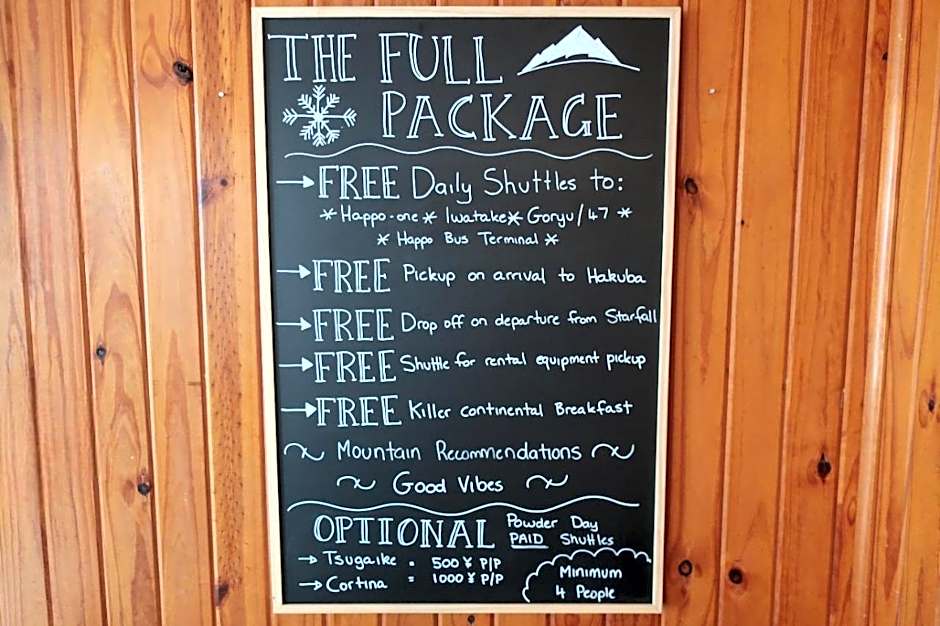 THE FULL
PACKAGE
→ FREE Daily Shuttles to:
* Happo-one * Iwatake * Goryu/47 *
* Happo Bus Terminal *
→ FREE Pickup on arrival to Hakuba
→ FREE Drop off on departure from Starfall
→ FREE Shuttle for rental equipment pickup
→ FREE Killer continental Breakfast
~ Mountain Recommendations ~
~ Good Vibes ~
OPTIONAL Powder Day
PAID Shuttles
→ Tsugaike = 500 ¥ P/P
→ Cortina = 1000 ¥ P/P
Minimum
4 People